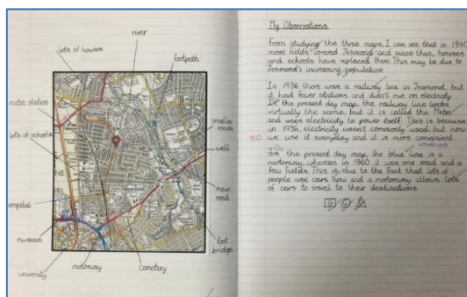 river
lots of houses
footpath
metro station
smaller roads
lots of schools
well
main road
hospital
museum
foot bridge
university
motorway
cemetery
My Observations
From studying the three maps, I can see that in 1860
more fields covered Jesmond and since then, houses
and schools have replaced them. This may be due to
Jesmond's increasing population.
In 1936 there was a railway line in Jesmond, but
it had fewer stations and didn't run on electricity.
In the present day map, the railway line looks
virtually the same, but it is called the 'Metro'
and uses electricity to power itself. This is because
in 1936, electricity wasn't commonly used but now
we use it everyday and it is more convenient.
On the present day map, the blue line is a
motorway, whereas in 1960 it was one road and a
few fields. This is due to the fact that lots of
people use cars now and a motorway allows lots
of cars to travel to their destinations.